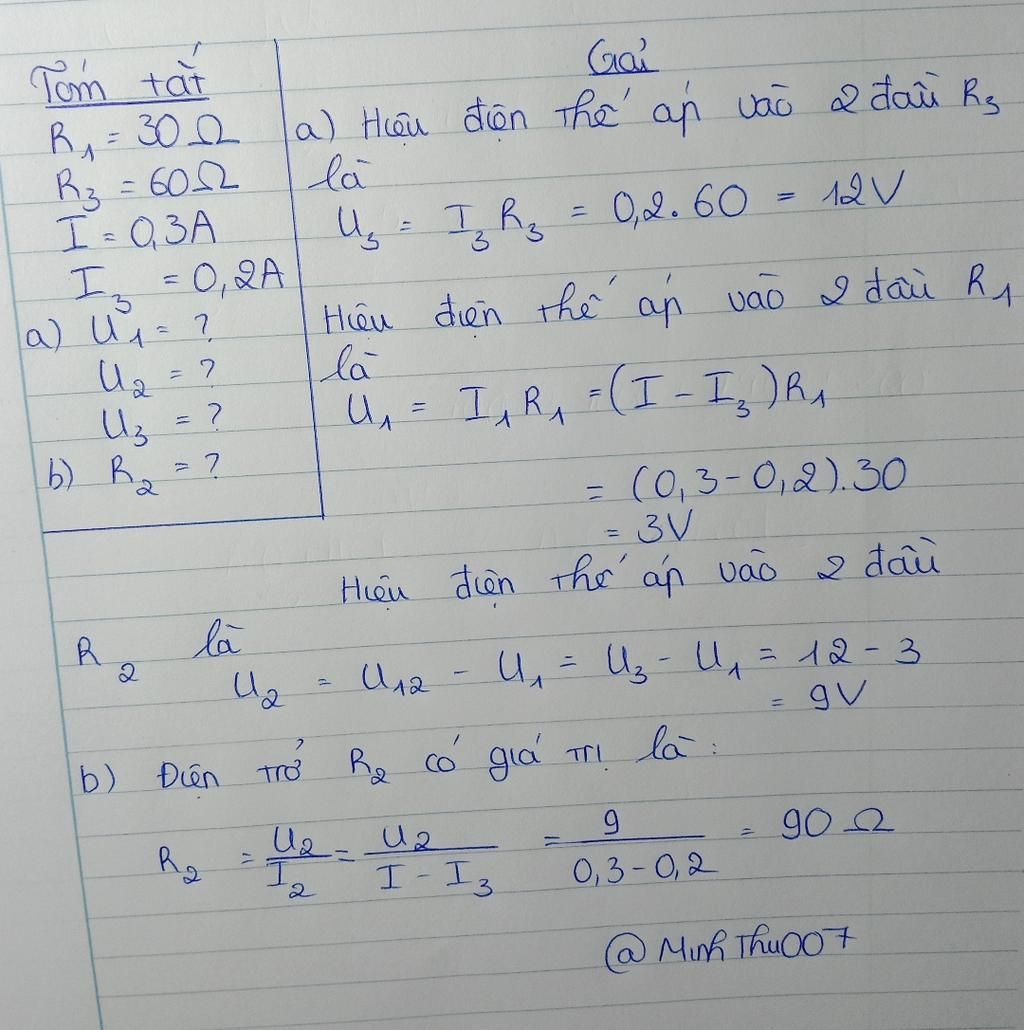 Tóm tắt
R₁ = 30Ω
R₃ = 60Ω
I = 0,3A
I₃ = 0,2A
a) U₁ = ?
U₂ = ?
U₃ = ?
b) R₂ = ?
Giải
a) Hiệu điện thế áp vào 2 đầu R₃
là
U₃ = I₃R₃ = 0,2.60 = 12V
Hiệu điện thế áp vào 2 đầu R₁
là
U₁ = I₁R₁ = (I - I₃)R₁
= (0,3-0,2).30
= 3V
Hiệu điện thế áp vào 2 đầu
R₂ là
U₂ = U₁₂ - U₁ = U₃ - U₁ = 12 - 3
= 9V
b) Điện trở R₂ có giá trị là :
R₂ = U₂/I₂ = U₂/(I - I₃) = 9/(0,3-0,2) = 90Ω
@MinhThu007